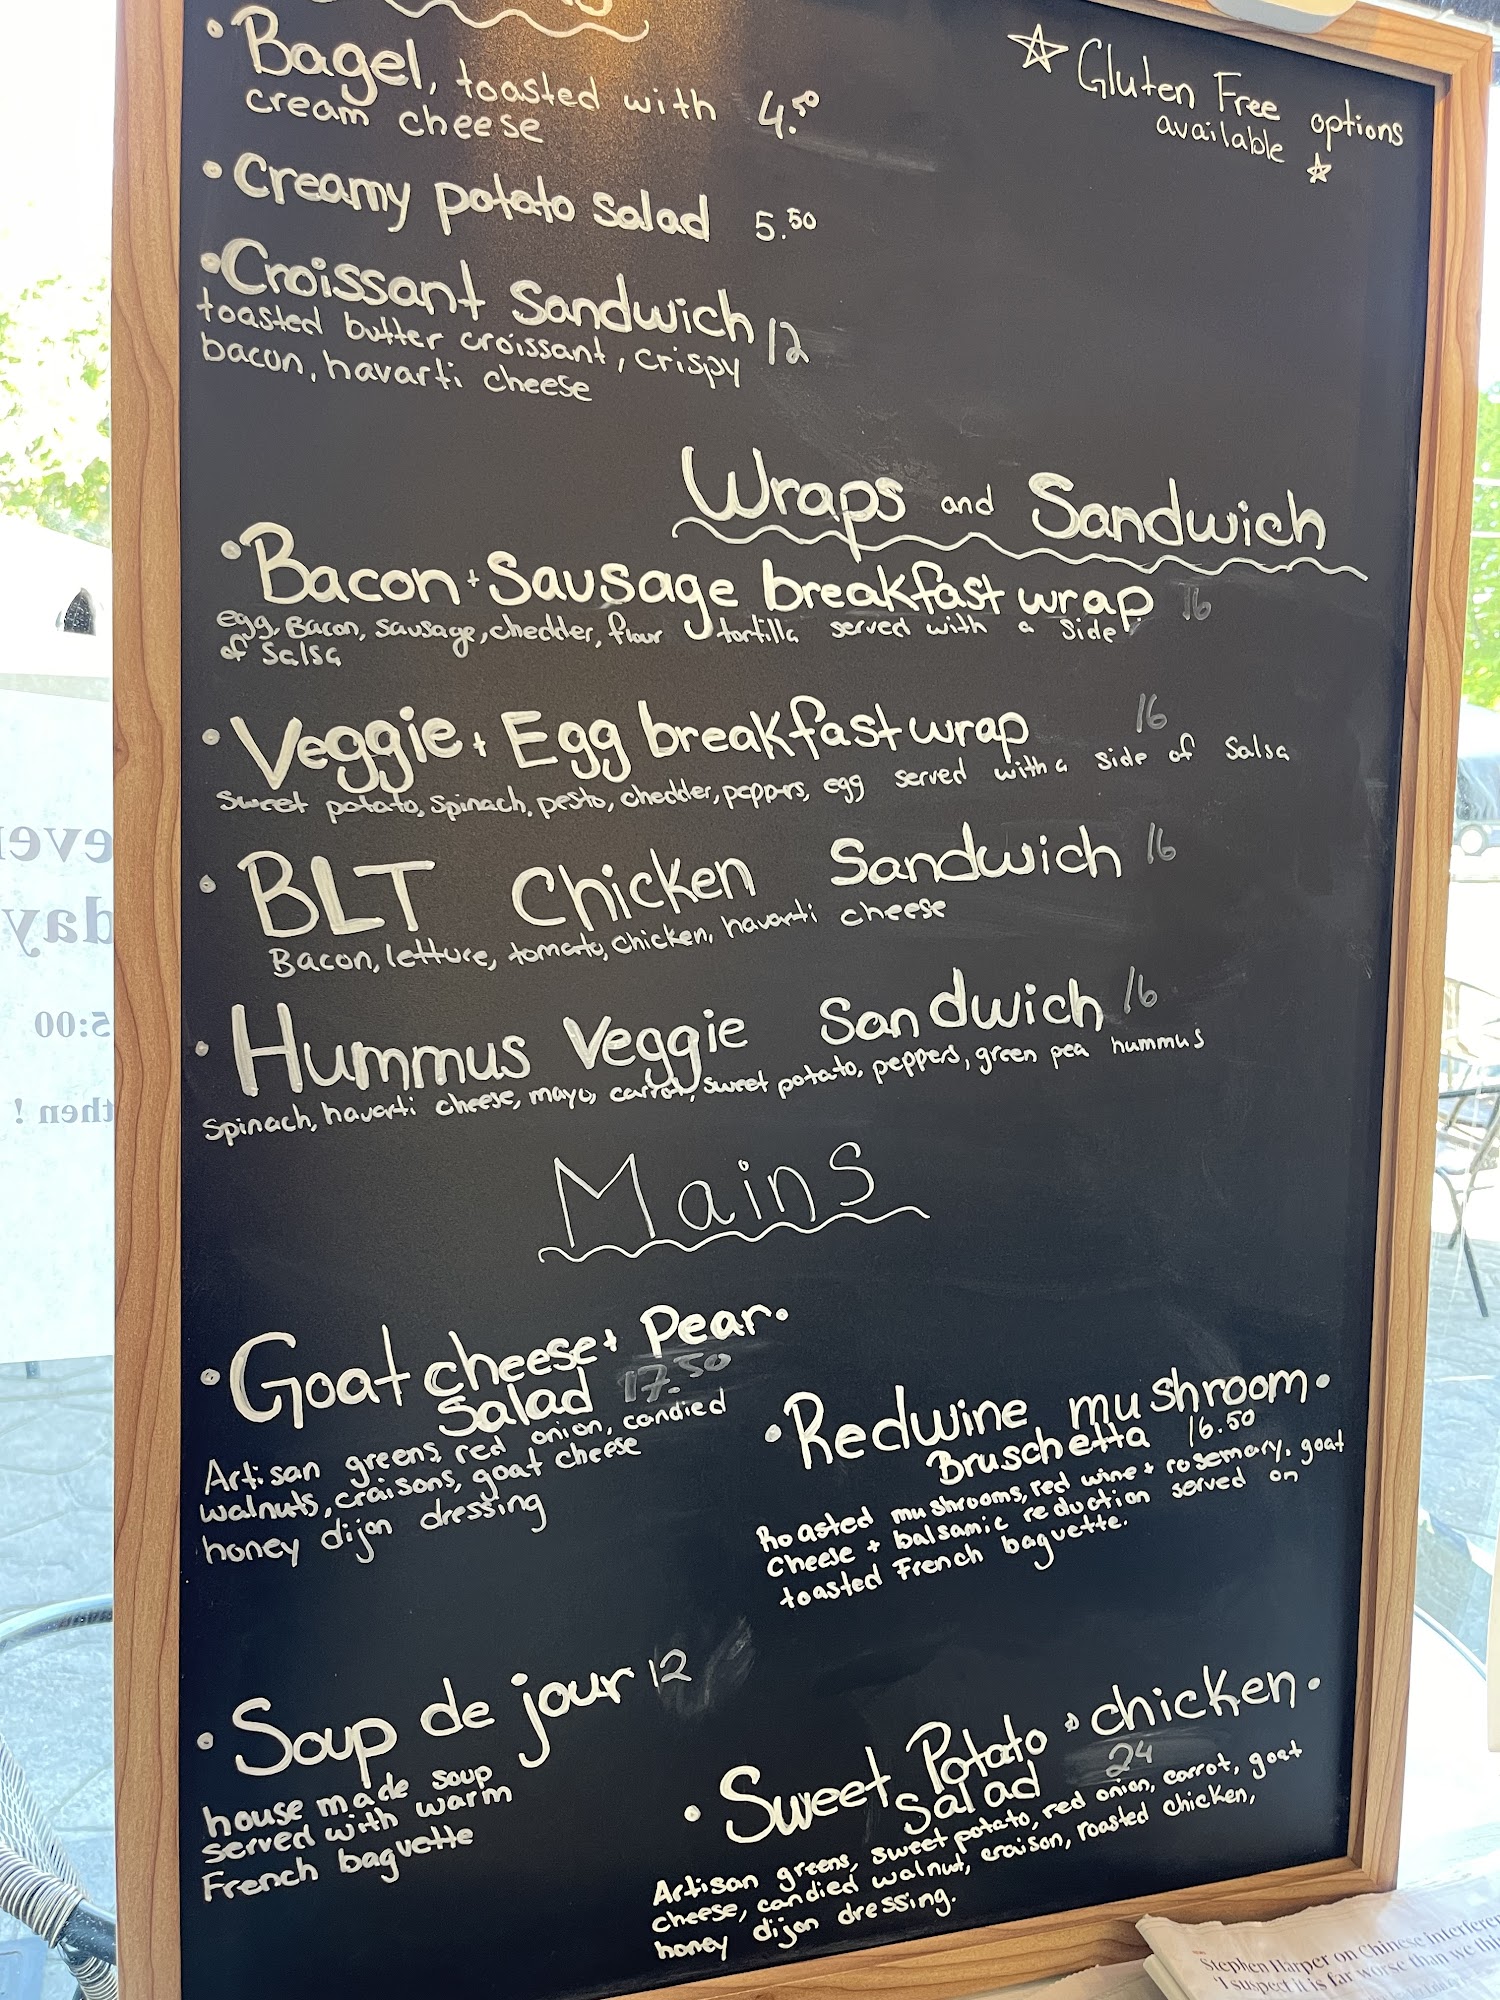 ☆ Gluten Free options
available ☆
• Bagel, toasted with 4.50
cream cheese
• Creamy potato salad 5.50
• Croissant Sandwich 12
toasted butter croissant, crispy
bacon, havarti cheese
Wraps and Sandwich
• Bacon + Sausage breakfast wrap 16
egg, Bacon, sausage, chedder, flour tortilla served with a side
of salsa
• Veggie + Egg breakfast wrap 16
sweet potato, spinach, pesto, chedder, peppers, egg served with a side of salsa
• BLT Chicken Sandwich 16
Bacon, lettuce, tomato, chicken, havarti cheese
• Hummus Veggie Sandwich 16
Spinach, havarti cheese, mayo, carrot, sweet potato, peppers, green pea hummus
Mains
• Goat cheese + Pear •
Salad 17.50
Artisan greens, red onion, candied
walnuts, craisons, goat cheese
honey dijon dressing
• Redwine mushroom •
Bruschetta 16.50
Roasted mushrooms, red wine + rosemary, goat
cheese + balsamic reduction served on
toasted French baguette.
• Soup de jour 12
house made soup
served with warm
French baguette
• Sweet Potato & chicken •
Salad 24
Artisan greens, sweet potato, red onion, carrot, goat
cheese, candied walnut, craison, roasted chicken,
honey dijon dressing.
day
5:00
then !
Stephen Harper on Chinese
'I suspect it is far worse than we